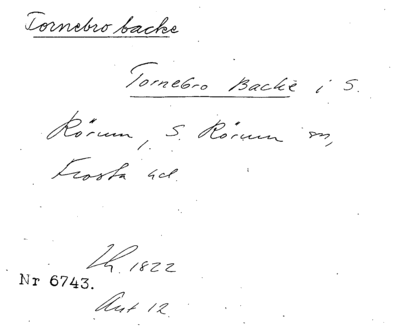 Tornebro backe
Tornebro Backe i S.
Rörum, S. Rörum sn,
Frosta hd.
Lh. 1822
Nr 6743.
Ant 12.